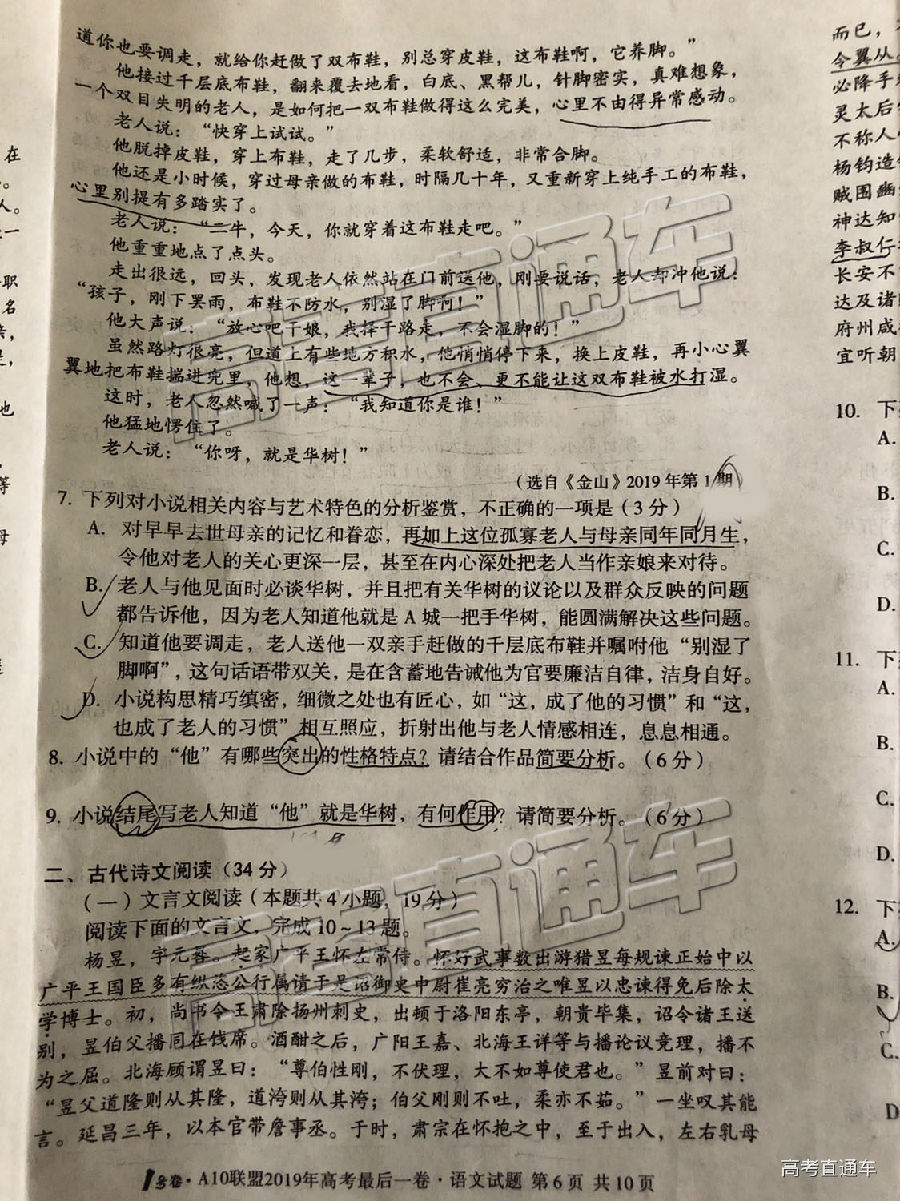 道你也要调走，就给你赶做了双布鞋，别总穿皮鞋，这布鞋啊，它养脚。”
他接过千层底布鞋，翻来覆去地看，白底、黑帮儿，针脚密实，真难想象，
一个双目失明的老人，是如何把一双布鞋做得这么完美，心里不由得异常感动。
老人说：“快穿上试试。”
他脱掉皮鞋，穿上布鞋，走了几步，柔软舒适，非常合脚。
他还是小时候，穿过母亲做的布鞋，时隔几十年，又重新穿上纯手工的布鞋，
心里别提有多踏实了。
老人说：“二牛，今天，你就穿着这布鞋走吧。”
他重重地点了点头。
走出很远，回头，发现老人依然站在门前送他，刚要说话，老人却冲他说：
“孩子，刚下罢雨，布鞋不防水，别湿了脚啊！”
他大声说：“放心吧干娘，我择干路走，不会湿脚的！”
虽然路灯很亮，但道上有些地方积水，他悄悄停下来，换上皮鞋，再小心翼
翼地把布鞋揣进兜里，他想，这一辈子，也不会、更不能让这双布鞋被水打湿。
这时，老人忽然喊了一声：“我知道你是谁！”
他猛地愣住了。
老人说：“你呀，就是华树！”
（选自《金山》2019年第1期）
7. 下列对小说相关内容与艺术特色的分析鉴赏，不正确的一项是（3分）
A. 对早早去世母亲的记忆和眷恋，再加上这位孤寡老人与母亲同年同月生，
令他对老人的关心更深一层，甚至在内心深处把老人当作亲娘来对待。
B. 老人与他见面时必谈华树，并且把有关华树的议论以及群众反映的问题
都告诉他，因为老人知道他就是A城一把手华树，能圆满解决这些问题。
C. 知道他要调走，老人送他一双亲手赶做的千层底布鞋并嘱咐他“别湿了
脚啊”，这句话语带双关，是在含蓄地告诫他为官要廉洁自律，洁身自好。
D. 小说构思精巧缜密，细微之处也有匠心，如“这，成了他的习惯”和“这，
也成了老人的习惯”相互照应，折射出他与老人情感相连，息息相通。
8. 小说中的“他”有哪些突出的性格特点？请结合作品简要分析。（6分）
9. 小说结尾写老人知道“他”就是华树，有何作用？请简要分析。（6分）
二、古代诗文阅读（34分）
（一）文言文阅读（本题共4小题，19分）
阅读下面的文言文，完成10～13题。
杨昱，字元晷。起家广平王怀左常侍。怀好武事数出游猎昱每规谏正始中以
广平王国臣多有纵恣公行属请于是诏御史中尉崔亮穷治之唯昱以忠谏得免后除太
学博士。初，尚书令王肃除扬州刺史，出顿于洛阳东亭，朝贵毕集，诏令诸王送
别，昱伯父播同在饯席。酒酣之后，广阳王嘉、北海王详等与播论议竞理，播不
为之屈。北海顾谓昱曰：“尊伯性刚，不伏理，大不如尊使君也。”昱前对曰：
“昱父道隆则从其隆，道洿则从其洿；伯父刚则不吐，柔亦不茹。”一坐叹其能
言。延昌三年，以本官带詹事丞。于时，肃宗在怀抱之中，至于出入，左右乳母
金卷·A10联盟2019年高考最后一卷·语文试题 第6页 共10页
在
人。
一
职
名
也
等
母
而已，
令翼从
必降手
灵太后
不称人
杨钧造
贼围幽
神达知
李叔仁
长安不
达及诸
府州咸
宜听朝
10. 下
A.
B.
C.
D.
11. 下
A.
B.
C.
D.
12. 下
A.
B.
C.
D
高考直通车
高考直通车
高考直通车